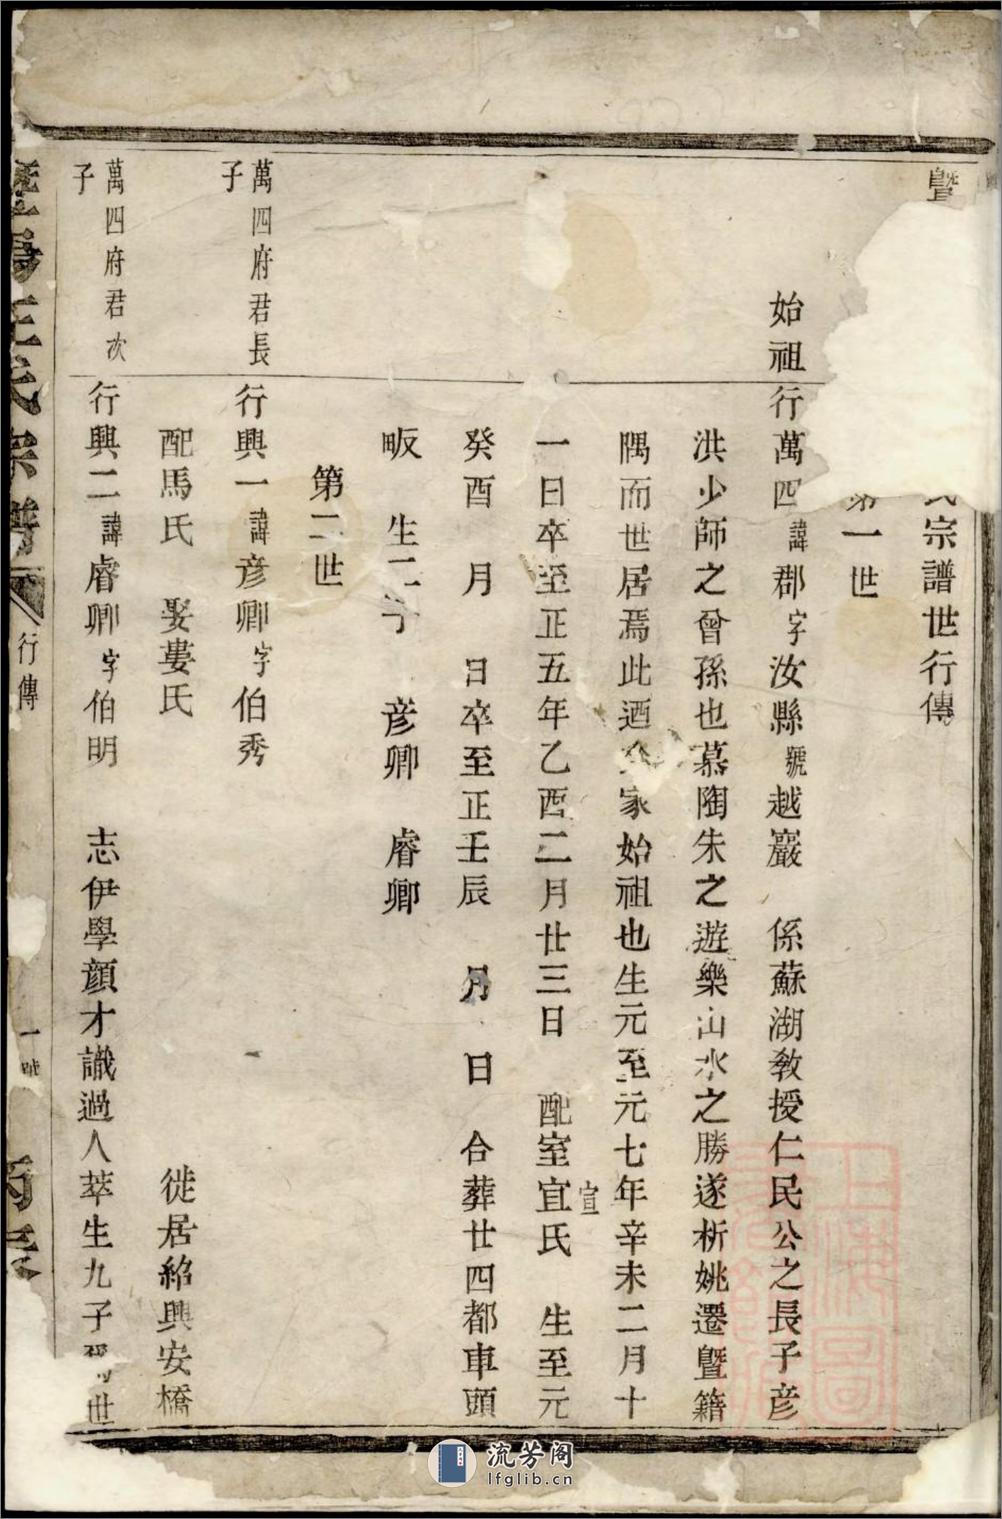 暨
氏宗譜世行傳
第一世
始祖
行萬四諱郡字汝縣號越巖 係蘇湖教授仁民公之長子彦
洪少師之曾孫也慕陶朱之遊樂山水之勝遂析姚遷暨籍
隅而世居焉此迺家始祖也生元至元七年辛未二月十
一日卒至正五年乙酉二月廿三日 配室宜氏 生至元
宣
癸酉 月 日卒至正壬辰 月 日 合葬廿四都車頭
畈 生二子 彦卿 睿卿
第二世
萬四府君長
子
行興一諱彦卿字伯秀
配馬氏 娶婁氏 徙居紹興安橋
萬四府君次
子
行興二諱睿卿字伯明 志伊學顔才識過人萃生九子世
暨陽王氏宗譜
行傳
一號
上海圖
流芳阁
lfglib.cn